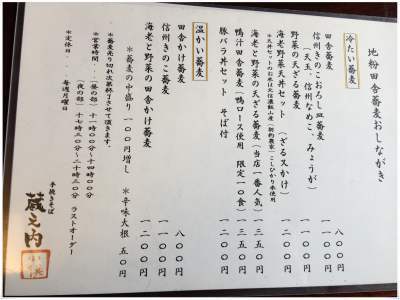 地粉田舎蕎麦おしながき
冷たい蕎麦
田舎蕎麦 八〇〇円
信州きのこおろし皿蕎麦 一一〇〇円
(天玉、信州なめこ、みょうが)
野菜の天ざる蕎麦 一一〇〇円
海老と野菜天丼セット (ざるヌかけ) 一二〇〇円
*天丼セットのお米は北信濃飯山産(契約農家)こしひかり米使用
海老と野菜の天ざる蕎麦(当店一番人気) 一三五〇円
鴨汁田舎蕎麦(鴨ロース使用 限定一〇食) 一三五〇円
豚バラ丼セット そば付 一二〇〇円
温かい蕎麦
田舎かけ蕎麦 八〇〇円
信州きのこ蕎麦 一一〇〇円
海老と野菜の田舎かけ蕎麦 一二〇〇円
*蕎麦の中盛り 一〇〇円増し *辛味大根 五〇円
*蕎麦売り切れ次第終了させて頂きます。
*営業時間・・(昼の部) 十一時〇〇分~十四時〇〇分
(夜の部) 十七時三〇分~二十時三〇分 ラストオーダー
*定休日・・毎週月曜日
手挽きそば
蔵之内